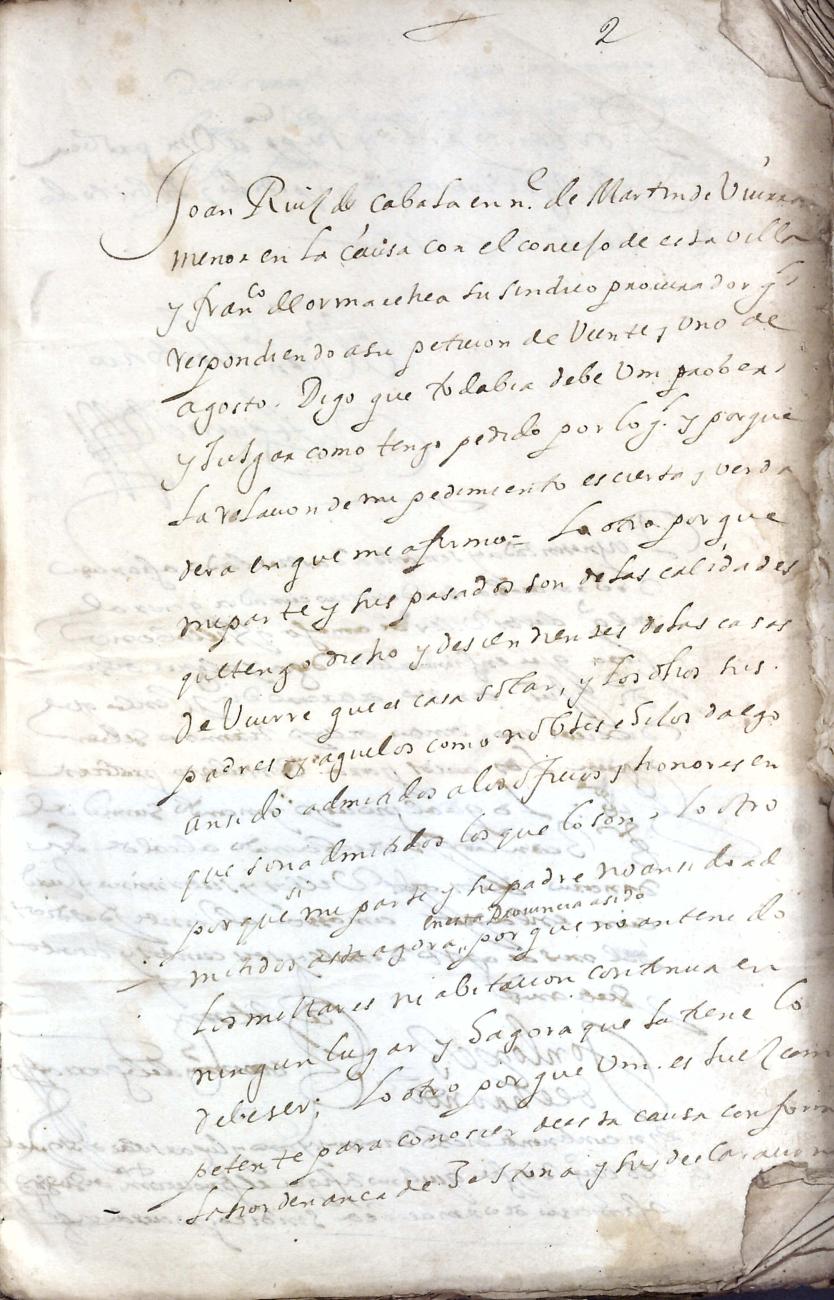 2
Joan Ruiz de Cabala en n.e de Martin de Viurr
menor en la causa con el concejo de esta villa
y fran.co de ormaechea su sindico procurador g.l
respondiendo a su peticion de veinte y uno de
agosto. Digo que todabia debe Vm probeer
y Juzgar como tengo pedido por lo g.l y porque
la relacion de mi pedimiento es cierta y verda
dera en que me afirmo = Lo otro por que
mi parte y sus pasados son de las calidades
que tengo dicho y descendientes de las casas
de Viurre que es casa solar, y los dhos sus
padres y aguelos como nobles e hijos dalgo
an sido admitidos a los officios y honores en
que son admitidos los que lo son, Lo otro
porque si mi parte y su padre no an sido ad
mitidos asta agora en esta Provincia a sido por que no an tenido
los millares ni abitacion continua en
ningun lugar y agora que la tiene lo
debe ser; Lo otro por que Vm. es Juez com
petente para conoscer de esta causa conform
la hordenanca de Zestona y sus declaracion